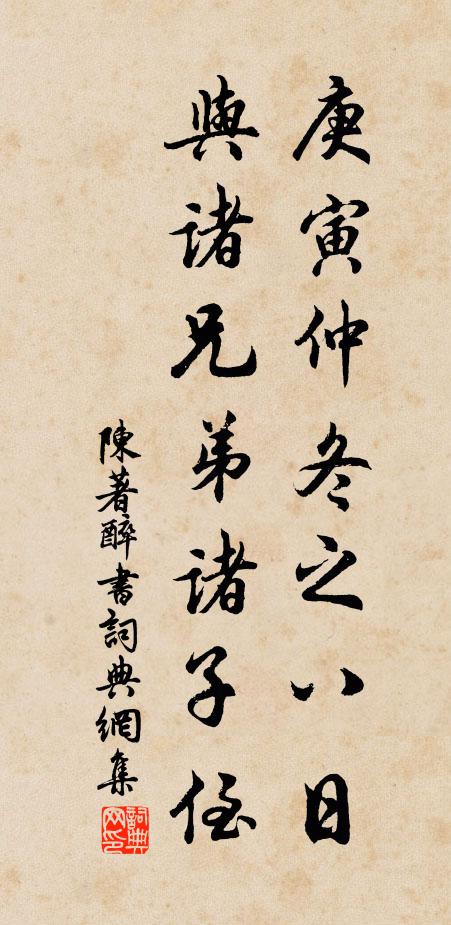 庚寅仲冬之八日
與諸兄弟諸子侄
陳著醉書詞典網集
詞典网印